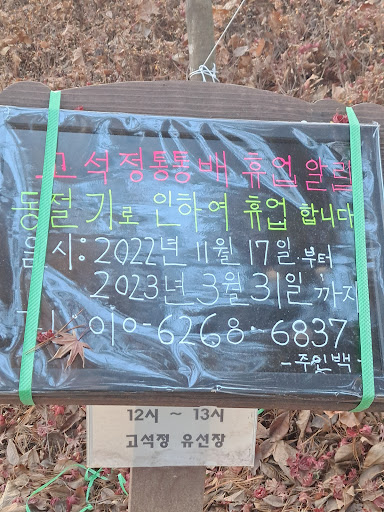 고석정통통배 휴업알림
동절기로 인하여 휴업 합니다
일시: 2022년 11월 17일 부터
2023년 3월 31일 까지
010-6268-6837
-주인백-
12시 ~ 13시
고석정 유선장